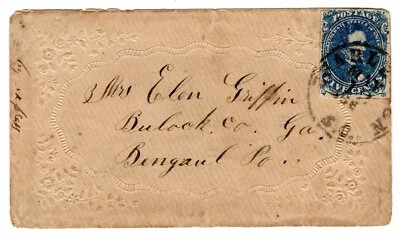 POSTAGE
FIVE CENTS
Mrs Elen Griffin
Bulock. Co. Ga.
Bengaul Po..